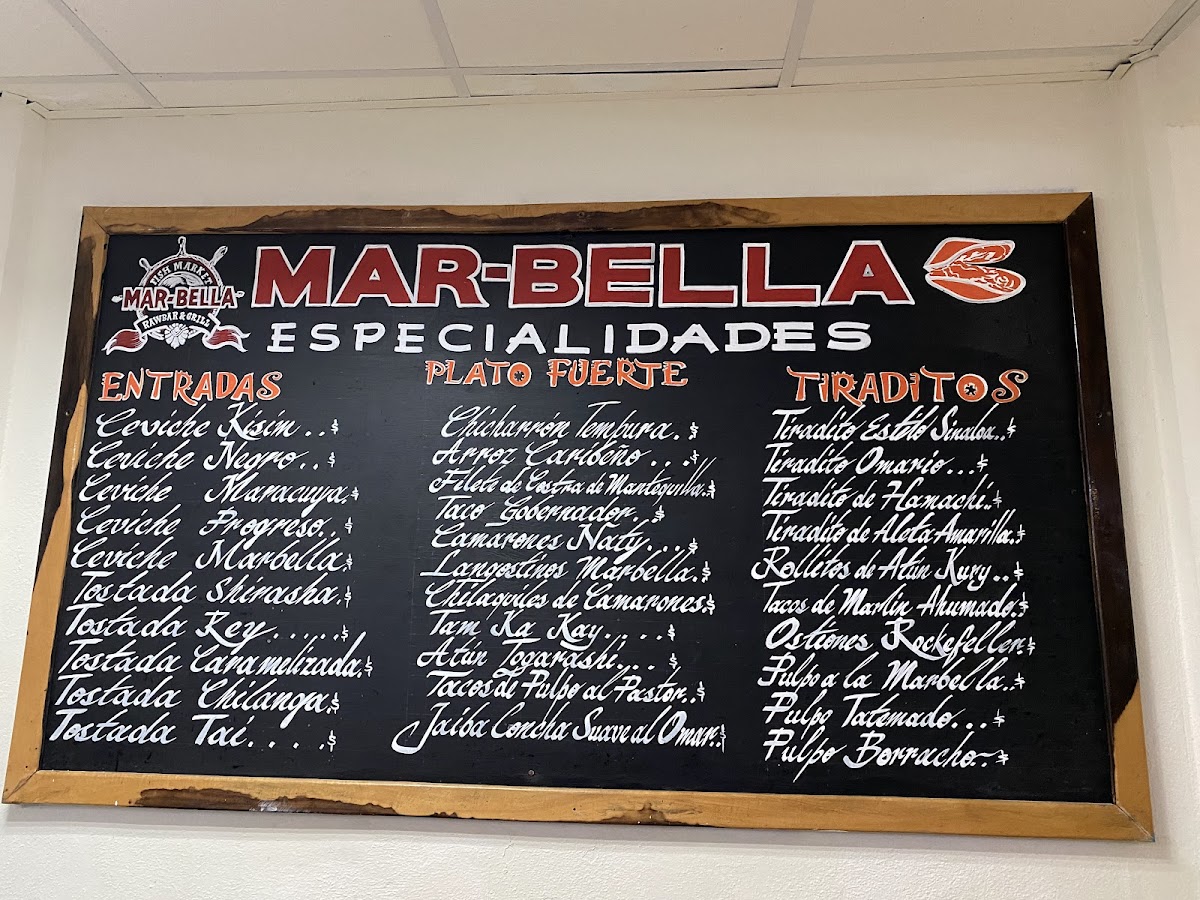 FISH MARKET
MAR-BELLA
RAWBAR & GRILL
MAR-BELLA
ESPECIALIDADES
ENTRADAS
Ceviche Kisin..$
Ceviche Negro..$
Ceviche Maracuya.$
Ceviche Progreso..$
Ceviche Marbella.$
Tostada Shirasha.$
Tostada Rey......$
Tostada Caramelizada.$
Tostada Chilanga.$
Tostada Tai....$
PLATO FUERTE
Chicharrón Tempura.$
Arroz Caribeño...$
Filete de Costra de Mantequilla.$
Taco Gobernador..$
Camarones Naty...$
Langostinos Marbella.$
Chilaquiles de Camarones.$
Tam Ka Kay....$
Atún Togarashi...$
Tacos de Pulpo al Pastor..$
Jaiba Concha Suave al Omar..$
TIRADITOS
Tiradito Estilo Sinaloa..$
Tiradito Omario...$
Tiradito de Hamachi..$
Tiradito de Aleta Amarilla.$
Rollitos de Atún Kury..$
Tacos de Marlin Ahumado.$
Ostiones Rockefeller.$
Pulpo a la Marbella..$
Pulpo Tatemado...$
Pulpo Borracho..$